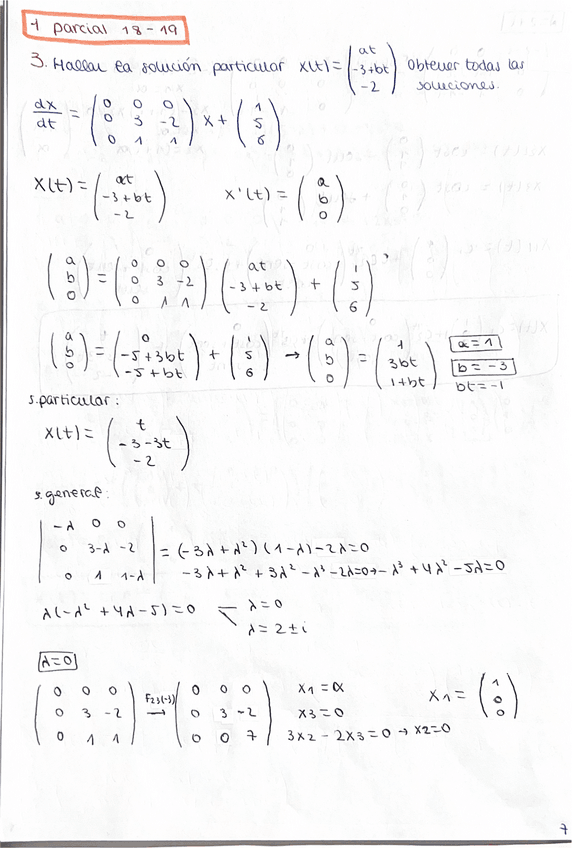 1 parcial 18-19
3. Hallar la solución particular x(t) = (at / -3+bt / -2) obtener todas las soluciones.
dx/dt = (0 0 0 / 0 3 -2 / 0 1 1) x + (1 / 5 / 6)
x(t) = (at / -3+bt / -2) x'(t) = (a / b / 0)
(a / b / 0) = (0 0 0 / 0 3 -2 / 0 1 1) (at / -3+bt / -2) + (1 / 5 / 6)
(a / b / 0) = (0 / -5+3bt / -5+bt) + (1 / 5 / 6) → (a / b / 0) = (1 / 3bt / 1+bt) a=1 b=-3 bt=-1
s.particular:
x(t) = (t / -3-3t / -2)
s.general:
|-λ 0 0 / 0 3-λ -2 / 0 1 1-λ| = (-3λ+λ²)(1-λ)-2λ=0
-3λ+λ²+3λ²-λ³-2λ=0→-λ³+4λ²-5λ=0
λ(-λ²+4λ-5)=0 λ=0
λ=2±i
λ=0
(0 0 0 / 0 3 -2 / 0 1 1) F23(-3) → (0 0 0 / 0 3 -2 / 0 0 7) x1=α x3=0 3x2-2x3=0→x2=0 x1 = (1 / 0 / 0)
7